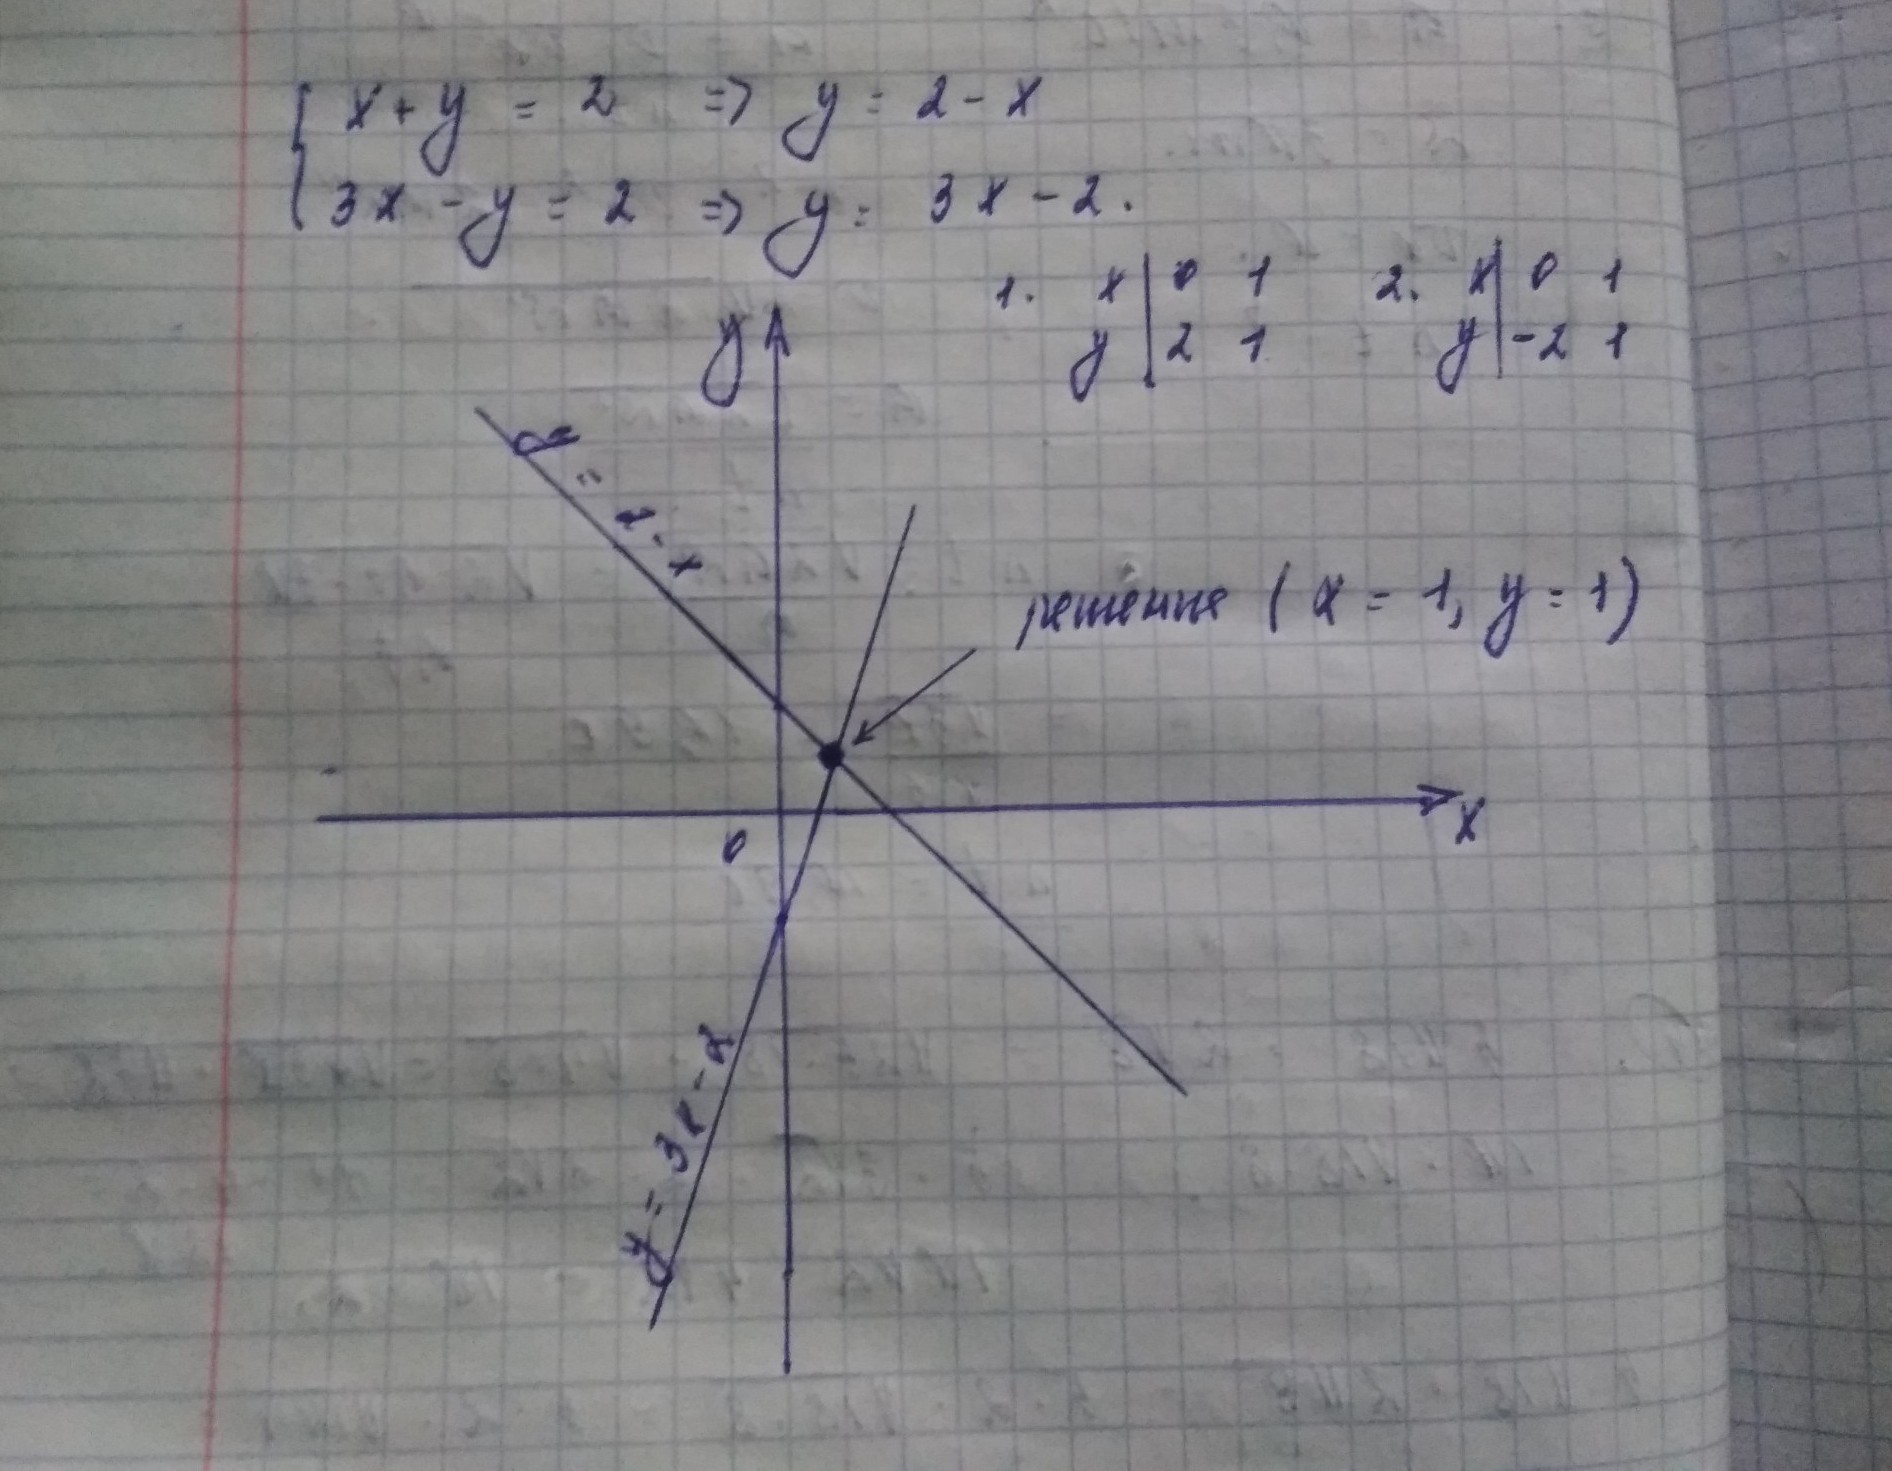 x + y = 2 => y = 2 - x
3x - y = 2 => y = 3x - 2.
1. x | 0 1 2. x | 0 1
y | 2 1 y | -2 1
y
y = 2 - x
решение (x = 1, y = 1)
x
0
y = 3x - 2